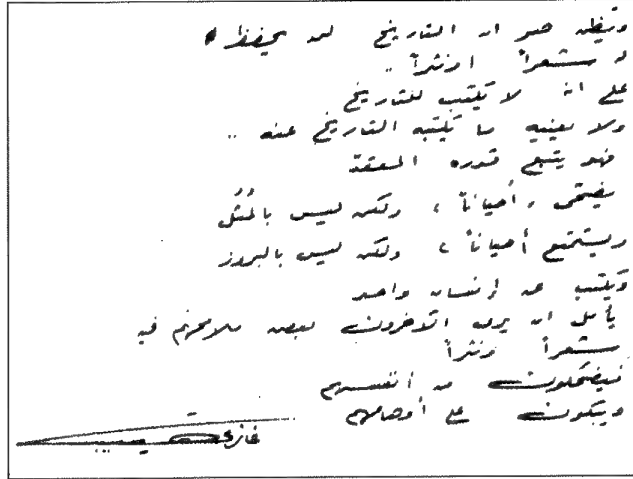 ويظن هو ان التاريخ لن يحفظ
له شعراً او نثراً ..
على انه لا يكتب للتاريخ
ولا يعنيه ما يكتبه التاريخ عنه ..
فهو يتبع قدره المعقد
يضحى، أحياناً، ولكن ليس بالمُثُل
ويستمتع أحياناً، ولكن ليس بالبروز
ويكتب عن إنسان واحد
يأمل ان يرى الآخرون بعض ملامحهم فيه
شعراً ونثراً
فيضحكون من انفسهم
ويبكون على أوهامهم
غازي